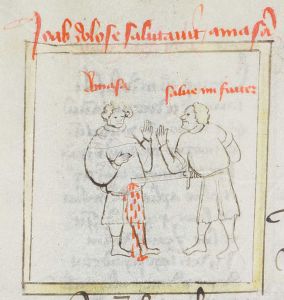 Joab dolose salutauit amasā
Amasa
salue mi frater